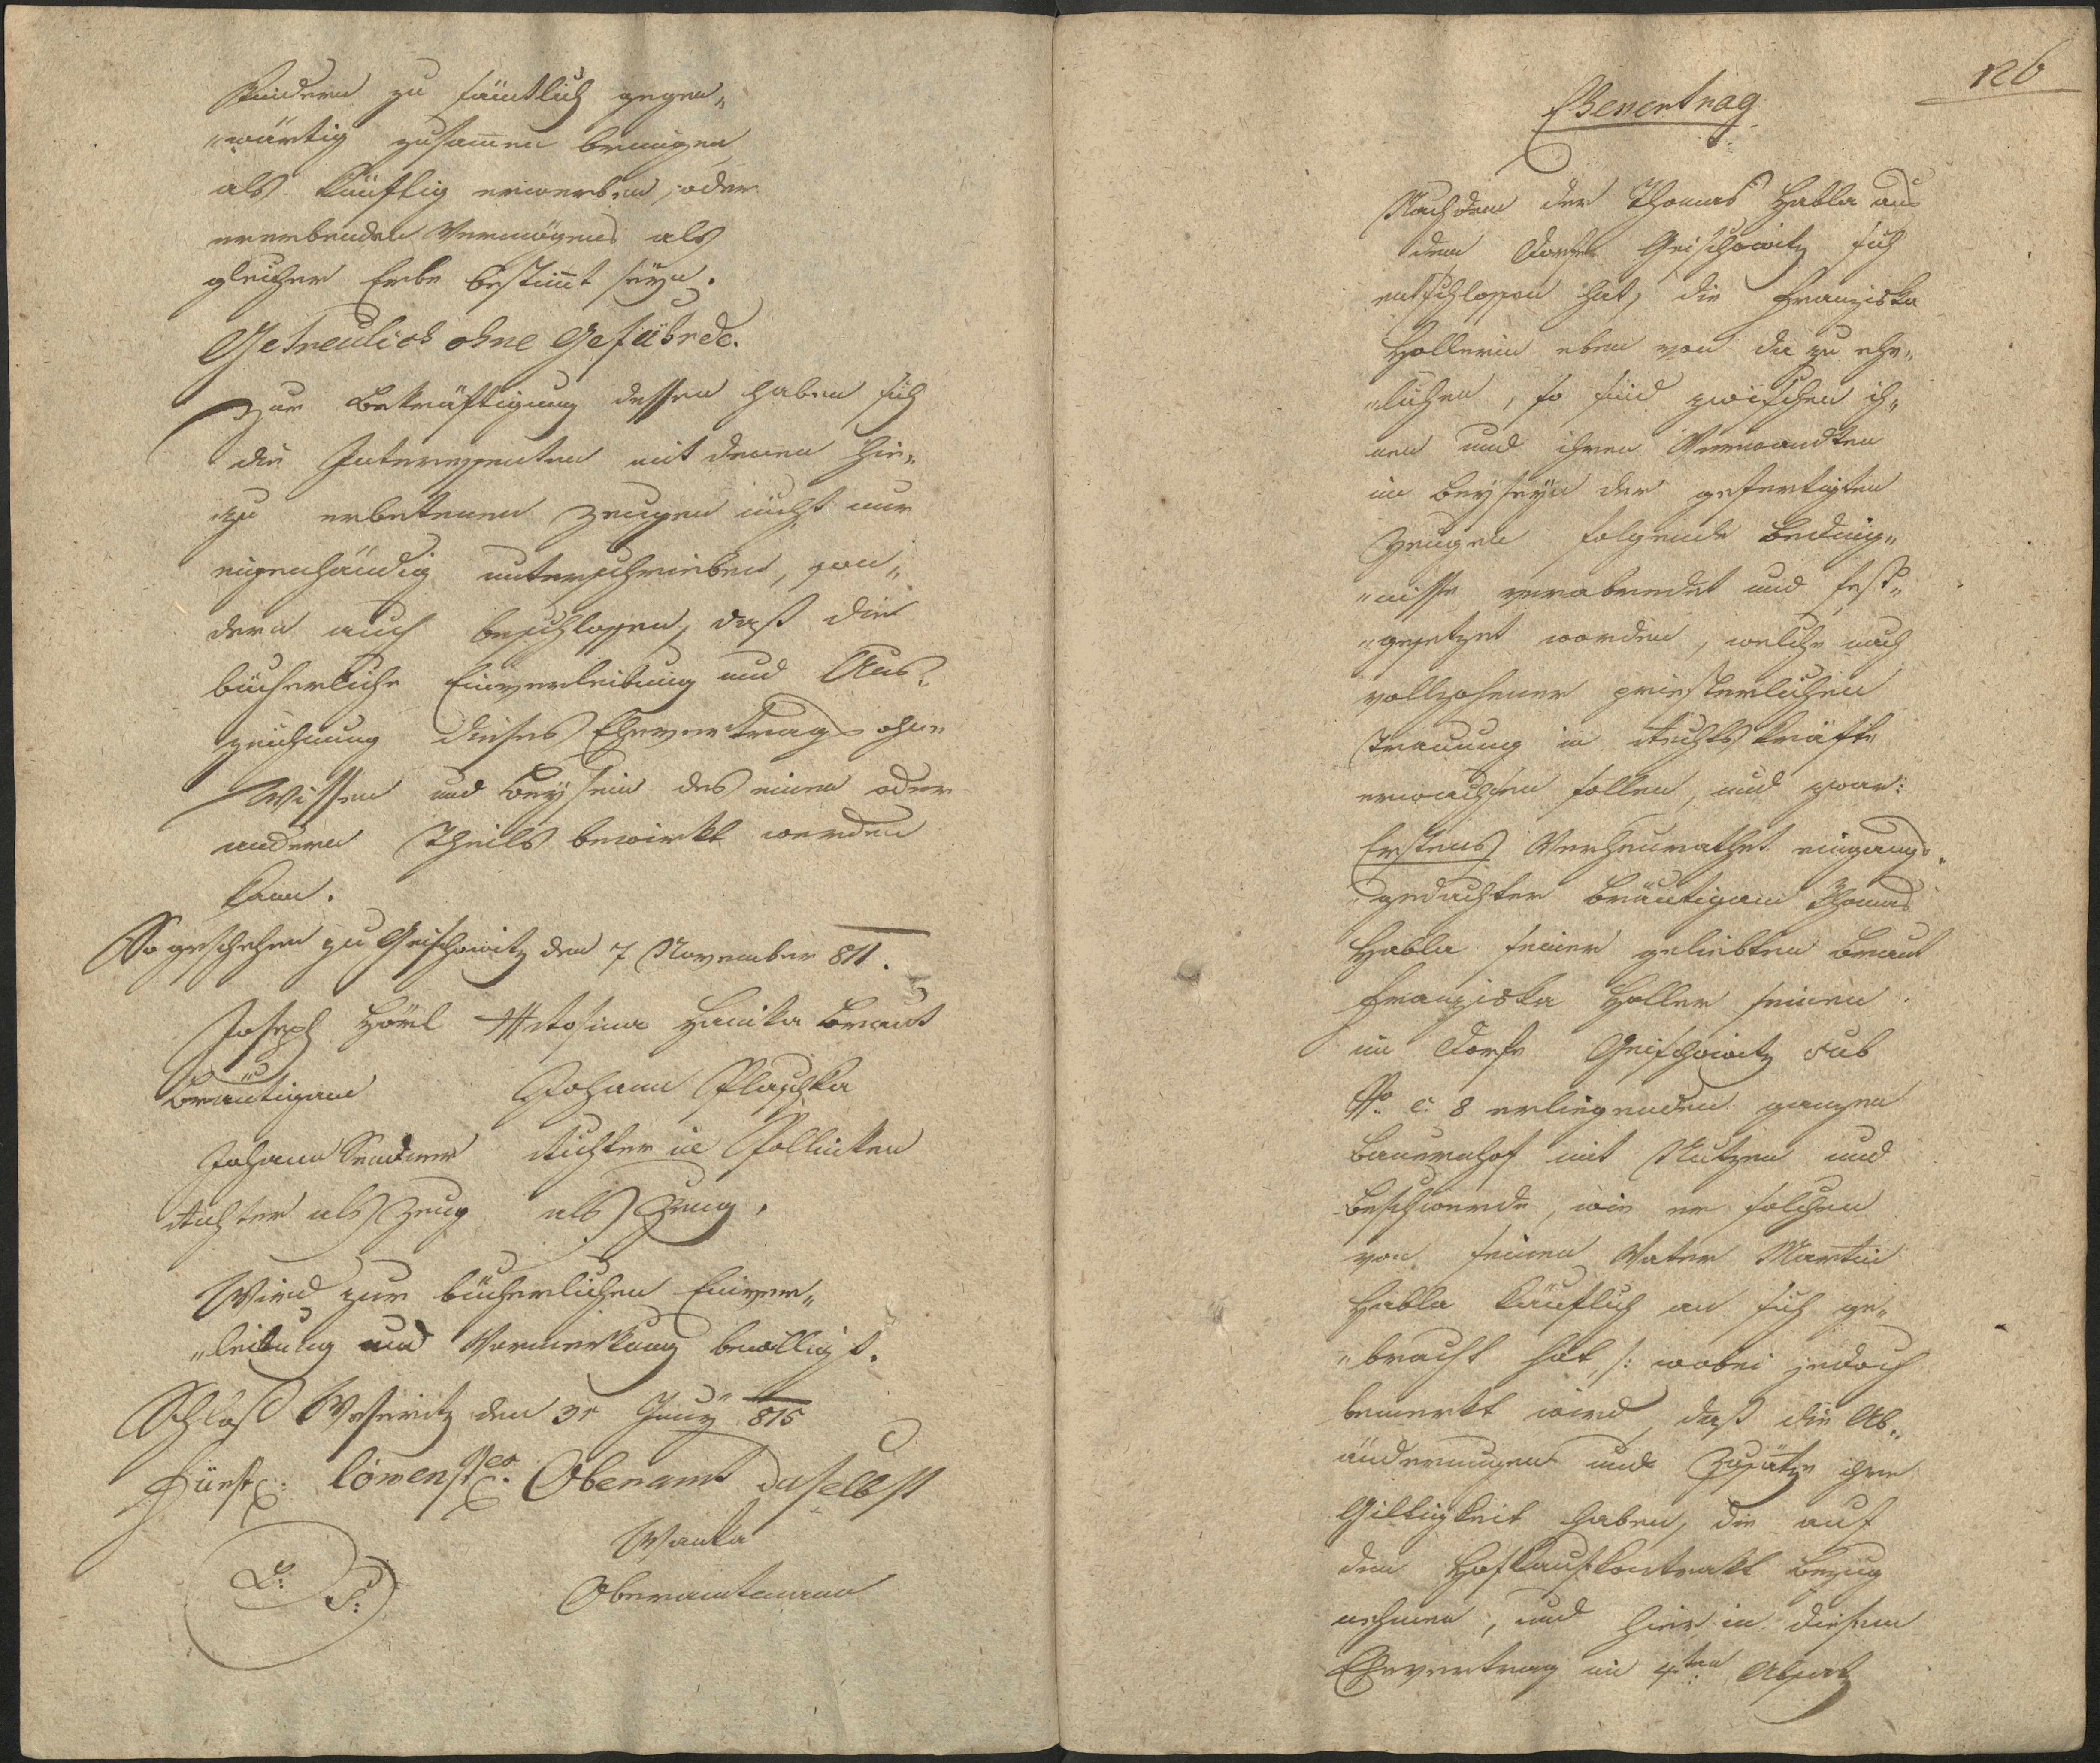 Kindern zu sämtlich gegen„
„wärtig zusamen bringen
als künftig erwerben, oder
ererbenden Vermögens als
gleicher Erbe bestimt seyn.
Getreulich ohne Gefährde.
Zur Bekräftigung dessen haben sich
die Interessenten mit denen hie„
zu erbetenen Zeugen nicht nur
eigenhändig unterschrieben, son„
dern auch beschlossen, daß die
bücherliche Einverleibung und Aus„
zeichnung dieses Ehevertrags ohne
Wissen und Beysein des einen oder
andern Theils bewirkt werden
kann.
So geschehen zu Geischowitz den 7 November 811.
Joseph Hörl Rosina Hanika Braut
Bräutigam Johann Plaschka
Johann Richter in Pollinken
Richter als Zeug als Zeug.
Wird zur bücherlichen Einver„
„leibung und Vormerkung bewilligt.
Schloß Weseritz den 31 Juny 815
Fürstl: Löwenst: Oberamt daselbst
Wanka
L: S:
Oberamtmann
126
Ehevertrag
Nachdem der Thomas Habla aus
dem Dorfe Geischowitz sich
entschlossen hat, die Franziska
Hollerin eben von da zu ehe„
„lichen, so sind zwischen ih„
nen und ihren Verwandten
im Beyseyn der gefertigten
Zeugen folgende Beding„
„nisse verabredet und fest„
„gesetzet worden, welche nach
vollzohener priesterlichen
Trauung in Rechtskräfte
erwachsen sollen, und zwar:
Erstens Verheurathet eingangs„
gedachter Bräutigam Thomas
Habla seiner geliebten Braut
Franziska Holler seinen
im Dorfe Geischowitz sub
No. c. 8 erliegenden ganzen
Bauernhof mit Nutzen und
Beschwerde, wie er solchen
von seinen Vater Martin
Habla käuflich an sich ge„
„bracht hat /: wobei jedoch
bemerkt wird, daß die Ab„
änderungen und Zusätze ihre
Gilltigkeit haben, die auf
den Hofkaufkontrakt Bezug
nehmen, und hier in diesem
Ehevertrag im 4ten Absatz